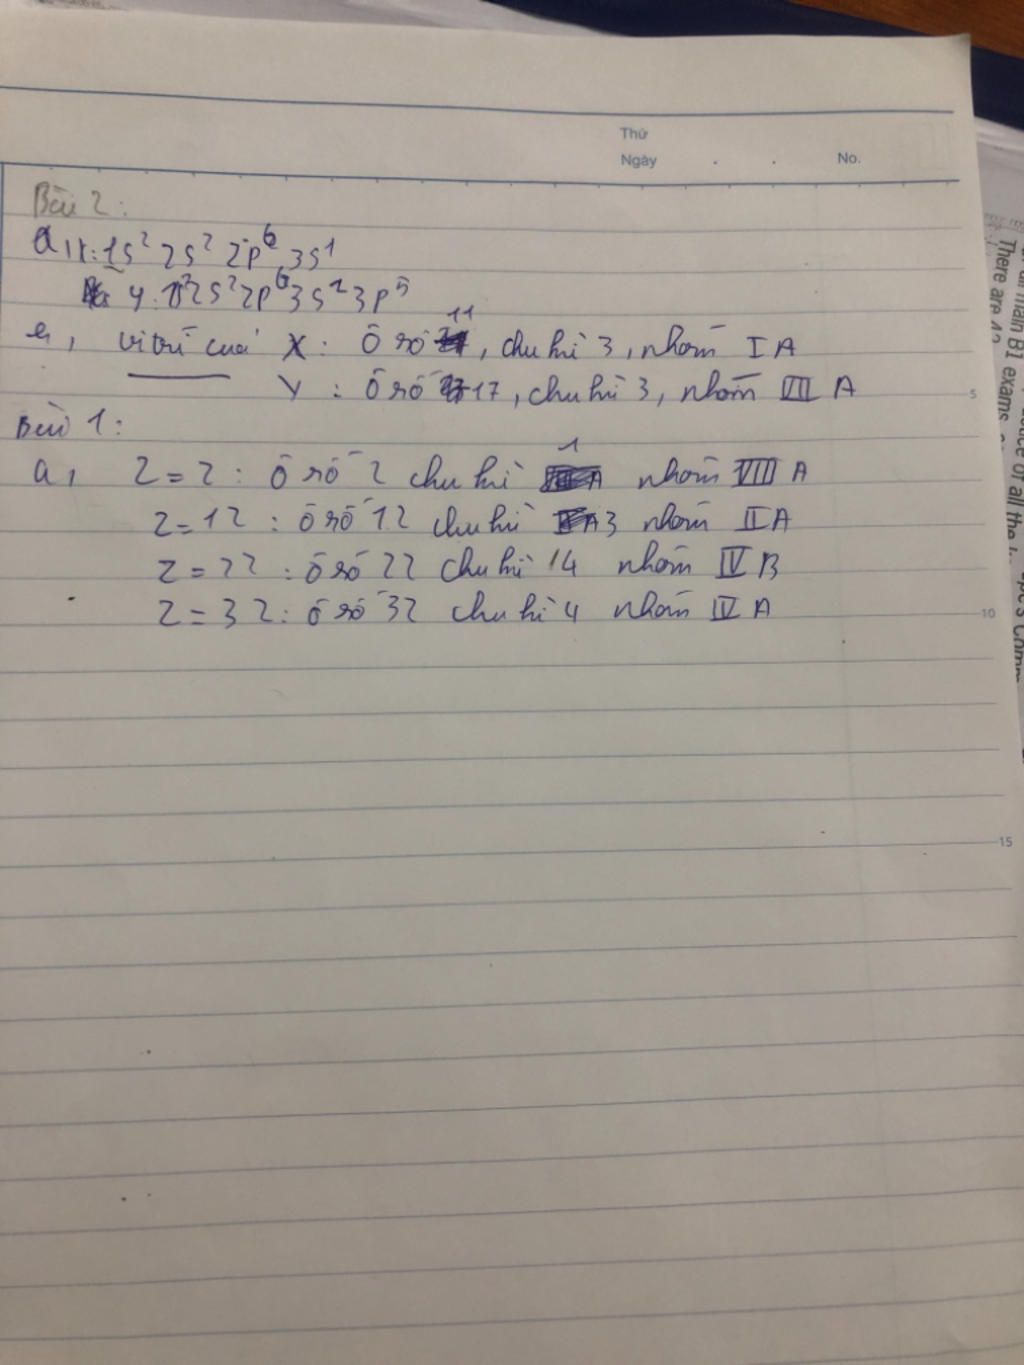 Thứ
Ngày . . No.
Bài 2:
a, X: 1s² 2s² 2p⁶ 3s¹
Y: 1s² 2s² 2p⁶ 3s² 3p⁵
vị trí của X: Ô số 11, chu kì 3, nhóm IA
Y: Ô số 17, chu kì 3, nhóm VII A
5
Bài 1:
a, Z=2: Ô số 2 chu kì 1 nhóm VIII A
Z=12: ô số 12 chu kì 3 nhóm IIA
Z=22: ô số 22 chu kì 4 nhóm IV B
Z=32: ô số 32 chu kì 4 nhóm IV A
10
15
There are
B1 exams
of all the